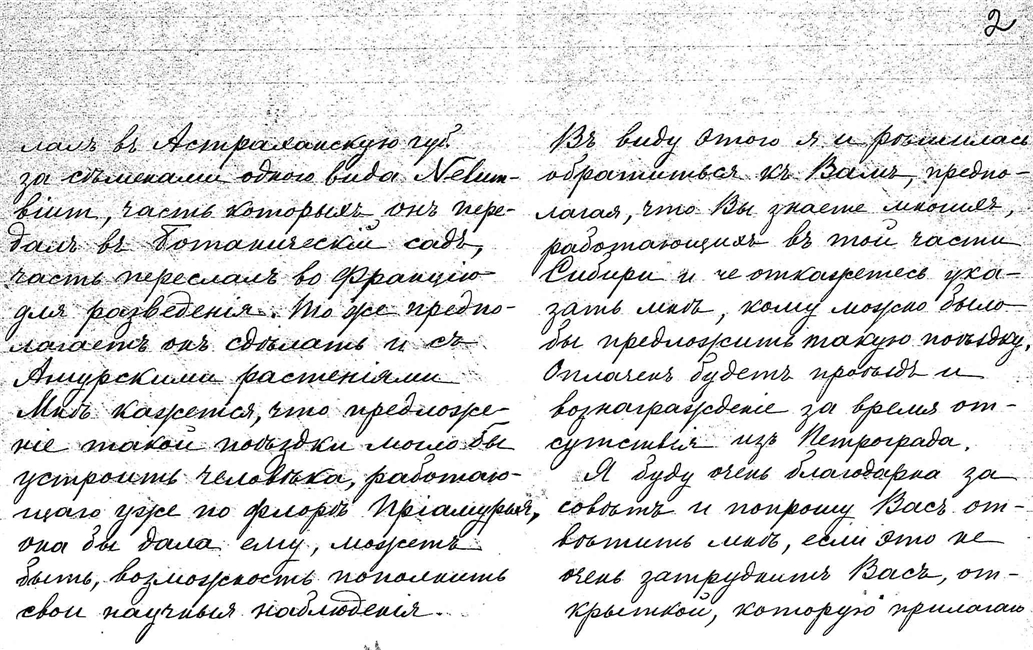 2
лалъ въ Астраханскую губ.
за сѣменами одного вида Nelum-
bium, часть которыхъ онъ пере-
далъ въ Ботаническій садъ,
часть переслалъ во Францію
для разведенія. То же предпо-
лагаетъ онъ сдѣлать и съ
Амурскими растеніями
Мнѣ кажется, что предложе-
ніе такой поѣздки могло бы
устроить человѣка, работаю-
щаго уже по флорѣ Пріамурья,
она бы дала ему, можетъ
быть, возможность пополнить
свои научныя наблюденія.
Въ виду этого я и рѣшилась
обратиться къ Вамъ, предпо-
лагая, что Вы знаете многихъ,
работающихъ въ той части
Сибири и не откажетесь ука-
зать мнѣ, кому можно было
бы предложить такую поѣздку.
Оплаченъ будетъ проѣздъ и
вознагражденіе за время от-
сутствія изъ Петрограда.
Я буду очень благодарна за
совѣтъ и попрошу Васъ от-
вѣтить мнѣ, если это не
очень затруднитъ Васъ, от-
крыткой, которую прилагаю